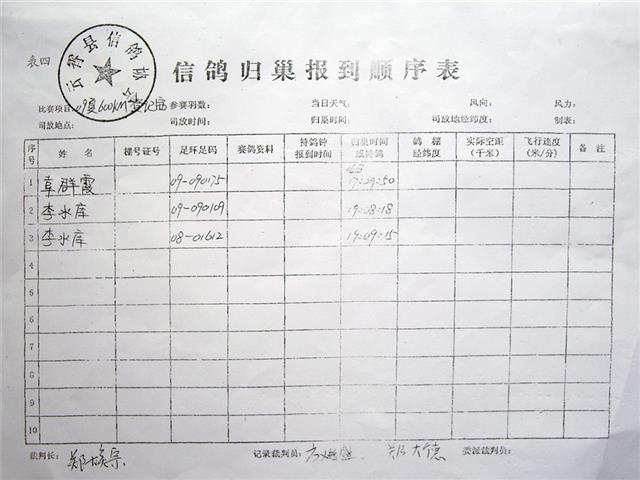 表四
云霄县信鸽协会
信鸽归巢报到顺序表
比赛项目: 600km 参赛羽数: 当日天气: 风向: 风力:
司放地点: 司放时间: 归巢时间: 司放地经纬度: 制表:
序号 姓名 棚号证号 足环足码 赛鸽资料 持鸽钟报到时间 归巢时间或持鸽 鸽棚经纬度 实际空距(千米) 飞行速度(米/分) 备注
1 章群霞 09-090175 17:29:50
2 李水库 09-090109 19:08:18
3 李水库 08-01612 19:09:15
4
5
6
7
8
9
10
裁判长: 记录裁判员: 郑大德 委派裁判员: